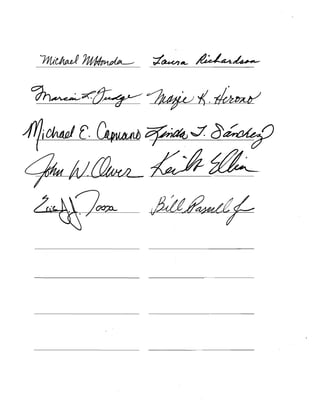 Michael M Honda Laura Richardson
Marcia L. Fudge Mazie K. Hirono
Michael E. Capuano Linda T. Sánchez
John W. Olver Keith Ellison
Bill Pascrell Jr